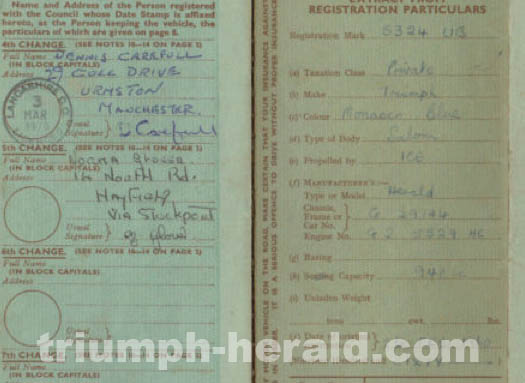 Name and Address of the Person registered
with the Council whose Date Stamp is affixed
hereto, as the Person keeping the vehicle, the
particulars of which are given on page 8.
4th CHANGE. (SEE NOTES 10—14 ON PAGE 2)
Full Name DENNIS CAREFULL
(IN BLOCK CAPITALS)
Address COLL DRIVE
URMSTON
MANCHESTER
LANCASHIRE C.C.
3
MAR
Usual
Signature D Carefull
5th CHANGE. (SEE NOTES 10—14 ON PAGE 2)
Full Name LORNA
(IN BLOCK CAPITALS)
Address North Rd.
HAYFIELD
Via Stockport
Usual
Signature
6th CHANGE. (SEE NOTES 10—14 ON PAGE 2)
Full Name
(IN BLOCK CAPITALS)
Address
Usual
Signature
7th CHANGE. (SEE NOTES 10—14 ON PAGE 2)
Full Name
(IN BLOCK CAPITALS)
VEHICLE ON THE ROAD, MAKE CERTAIN THAT YOUR INSURANCE AGAINST
IT IS A SERIOUS OFFENCE TO DRIVE WITHOUT PROPER INSURANCE
EXTRACT FROM
REGISTRATION PARTICULARS
Registration Mark 6324 UB
(a) Taxation Class Private
(b) Make Triumph
(c) Colour Monaco Blue
(d) Type of Body Saloon
(e) Propelled by ICE
(f) MANUFACTURER'S—
Type or Model Herald
Chassis,
Frame or G 29144
Car No.
Engine No. HE
(g) Rating
(h) Seating Capacity 948 cc
(i) Unladen Weight
tons cwt. lbs.
triumph-herald.com